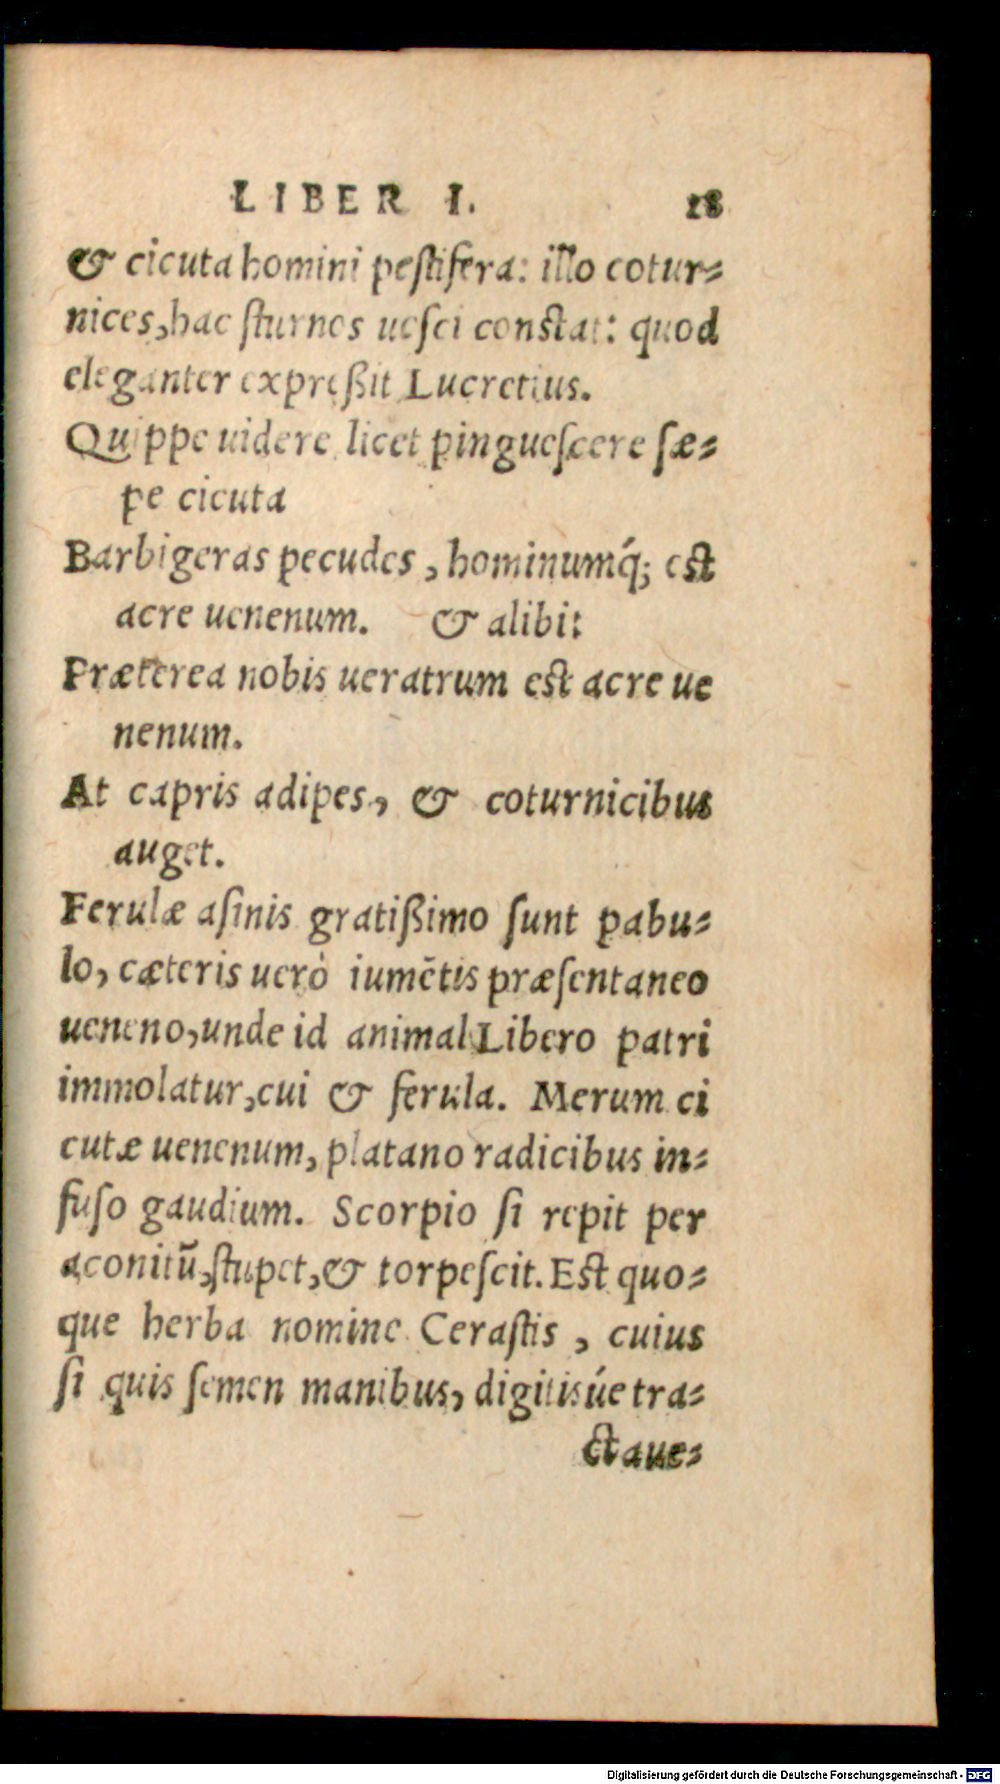 LIBER I. 18
& cicuta homini pestifera: illo cotur-
nices, hac sturnos uesci constat: quod
eleganter expreßit Lucretius.
Quippe uidere licet pinguescere sæ-
pe cicuta
Barbigeras pecudes, hominumq́; est
acre uenenum. & alibi:
Præterea nobis ueratrum est acre ue
nenum.
At capris adipes, & coturnicibus
auget.
Ferulæ asinis gratißimo sunt pabu-
lo, cæteris uerò iumētis præsentaneo
ueneno, unde id animal Libero patri
immolatur, cui & ferula. Merum ci
cutæ uenenum, platano radicibus in-
fuso gaudium. Scorpio si repit per
aconitū, stupet, & torpescit. Est quo-
que herba nomine Cerastis, cuius
si quis semen manibus, digitisúe tra-
ctaue-
Digitalisierung gefördert durch die Deutsche Forschungsgemeinschaft - DFG